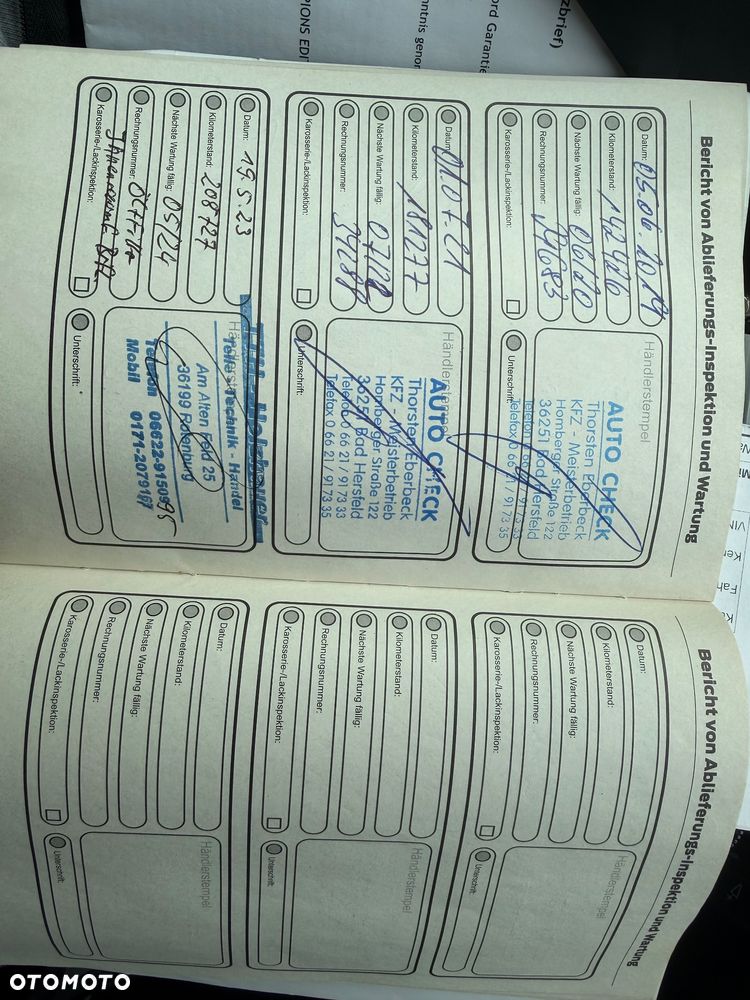 zbrief)
ord Garantie
nntnis genor
PIONS EDIT
Bericht von Ablieferungs-Inspektion und Wartung
Datum: 05.06.2019
Kilometerstand: 142426
Nächste Wartung fällig: 06/20
Rechnungsnummer:
Karosserie-/Lackinspektion:
Händlerstempel
AUTO CHECK
Thorsten Eberbeck
KFZ - Meisterbetrieb
Homberger Straße 122
36251 Bad Hersfeld
Telefon 0 66 21 / 91 73 33
Telefax 0 66 21 / 91 73 35
Unterschrift:
Datum: 01.07.21
Kilometerstand: 181277
Nächste Wartung fällig: 07/22
Rechnungsnummer:
Karosserie-/Lackinspektion:
Händlerstempel
AUTO CHECK
Thorsten Eberbeck
KFZ - Meisterbetrieb
Homberger Straße 122
36251 Bad Hersfeld
Telefon 0 66 21 / 91 73 33
Telefax 0 66 21 / 91 73 35
Unterschrift:
Datum: 19.5.23
Kilometerstand: 208727
Nächste Wartung fällig: 05/24
Rechnungsnummer:
Karosserie-/Lackinspektion:
Händlerstempel
Teile - Technik - Handel
Am Alten Feld 25
36199 Rotenburg
Telefon 06623-915095
Mobil 0171-2079167
Unterschrift:
Bericht von Ablieferungs-Inspektion und Wartung
Datum:
Kilometerstand:
Nächste Wartung fällig:
Rechnungsnummer:
Karosserie-/Lackinspektion:
Händlerstempel
Unterschrift:
Datum:
Kilometerstand:
Nächste Wartung fällig:
Rechnungsnummer:
Karosserie-/Lackinspektion:
Händlerstempel
Unterschrift:
Datum:
Kilometerstand:
Nächste Wartung fällig:
Rechnungsnummer:
Karosserie-/Lackinspektion:
Händlerstempel
Unterschrift:
VIN
OTOMOTO